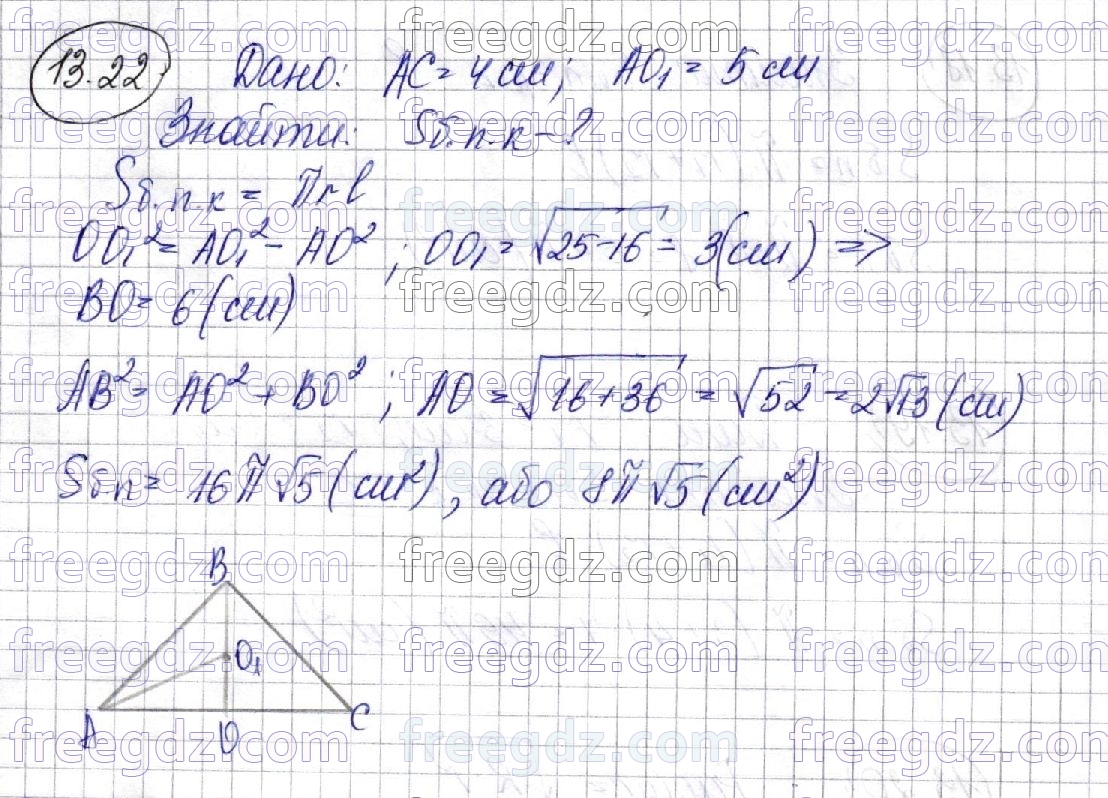 13.22 Дано: AC = 4 см; AO₁ = 5 см
Знайти: Sб.п.к - ?
Sб.п.к = πrl
OO₁² = AO₁² - AO² ; OO₁ = √25-16 = 3(см) =>
BO = 6 (см)
AB² = AO² + BO² ; AO = √16+36 = √52 = 2√13 (см)
Sбп = 16π√5 (см²), або 8π√5 (см²)
B
O₁
A O C
freegdz.com